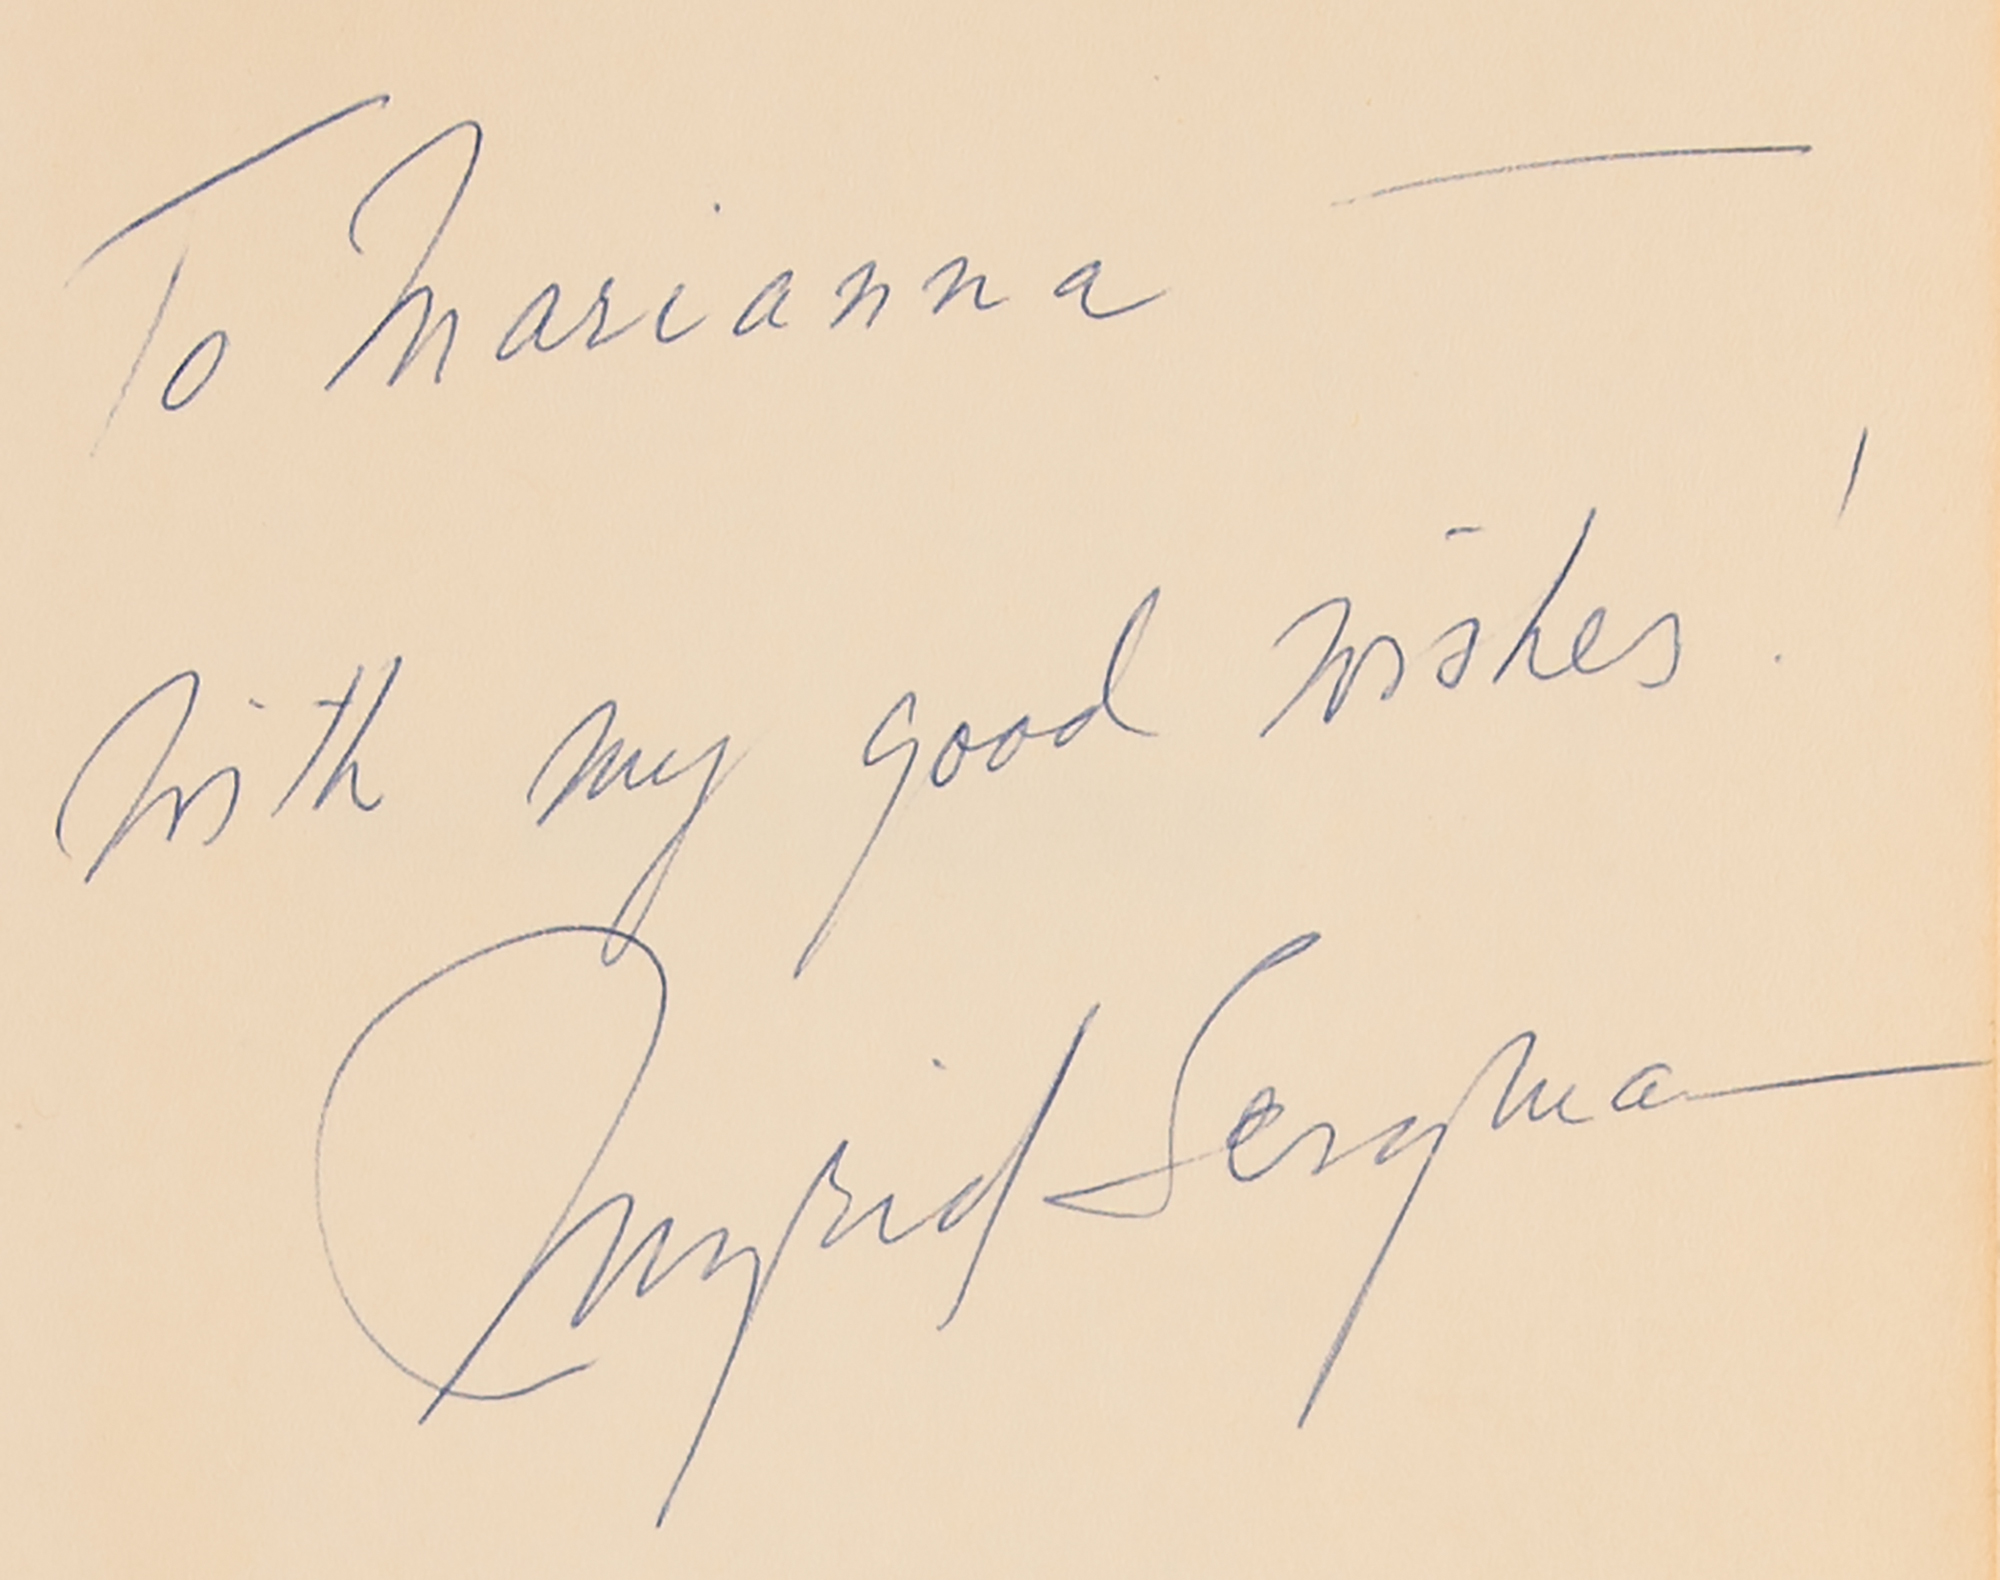 To Marianna —
with my good wishes!
Ingrid Bergman